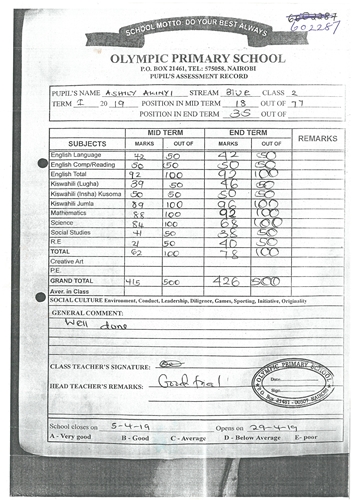 SCHOOL MOTTO: DO YOUR BEST ALWAYS
6002287
602287
OLYMPIC PRIMARY SCHOOL
P.O. BOX 21461, TEL: 575058, NAIROBI
PUPIL'S ASSESSMENT RECORD
PUPIL'S NAME ASHLY AKINYI STREAM BLUE CLASS 2
TERM I 2019 POSITION IN MID TERM 18 OUT OF 77
POSITION IN END TERM 35 OUT OF
MID TERM END TERM REMARKS
SUBJECTS MARKS OUT OF MARKS OUT OF
English Language 42 50 42 50
English Comp/Reading 50 50 50 50
English Total 92 100 92 100
Kiswahili (Lugha) 39 50 46 50
Kiswahili (Insha) Kusoma 50 50 50 50
Kiswahili Jumla 89 100 96 100
Mathematics 88 100 92 100
Science 84 100 68 100
Social Studies 41 50 38 50
R.E 21 50 40 50
TOTAL 62 100 78 100
Creative Art
P.E.
GRAND TOTAL 415 500 426 500
Aver. in Class
SOCIAL CULTURE Environment, Conduct, Leadership, Diligence, Games, Sporting, Initiative, Originality
GENERAL COMMENT:
Well done
CLASS TEACHER'S SIGNATURE:
HEAD TEACHER'S REMARKS: Good
OLYMPIC PRIMARY SCHOOL
Date:
Sign:
P.O. Box 21461 - 00505 NAIROBI
School closes on 5-4-19 Opens on 29-4-19
A - Very good B - Good C - Average D - Below Average E- poor